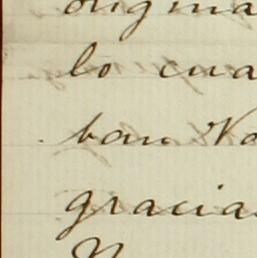 origina
lo cua
ban Va
gracia